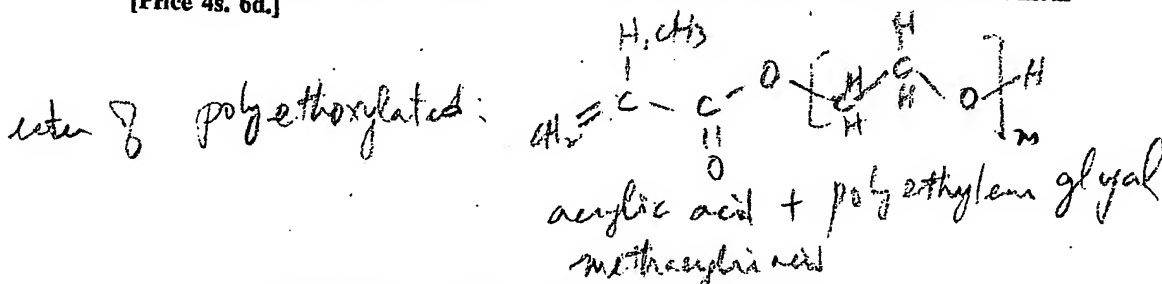 [Price 4s. 6d.]
H, CH3
ester of polyethoxylated:
CH2 = C - C - O - [ C - C - O ] H
H H H H
O
m
acrylic acid + polyethylene glycol
methacrylic acid